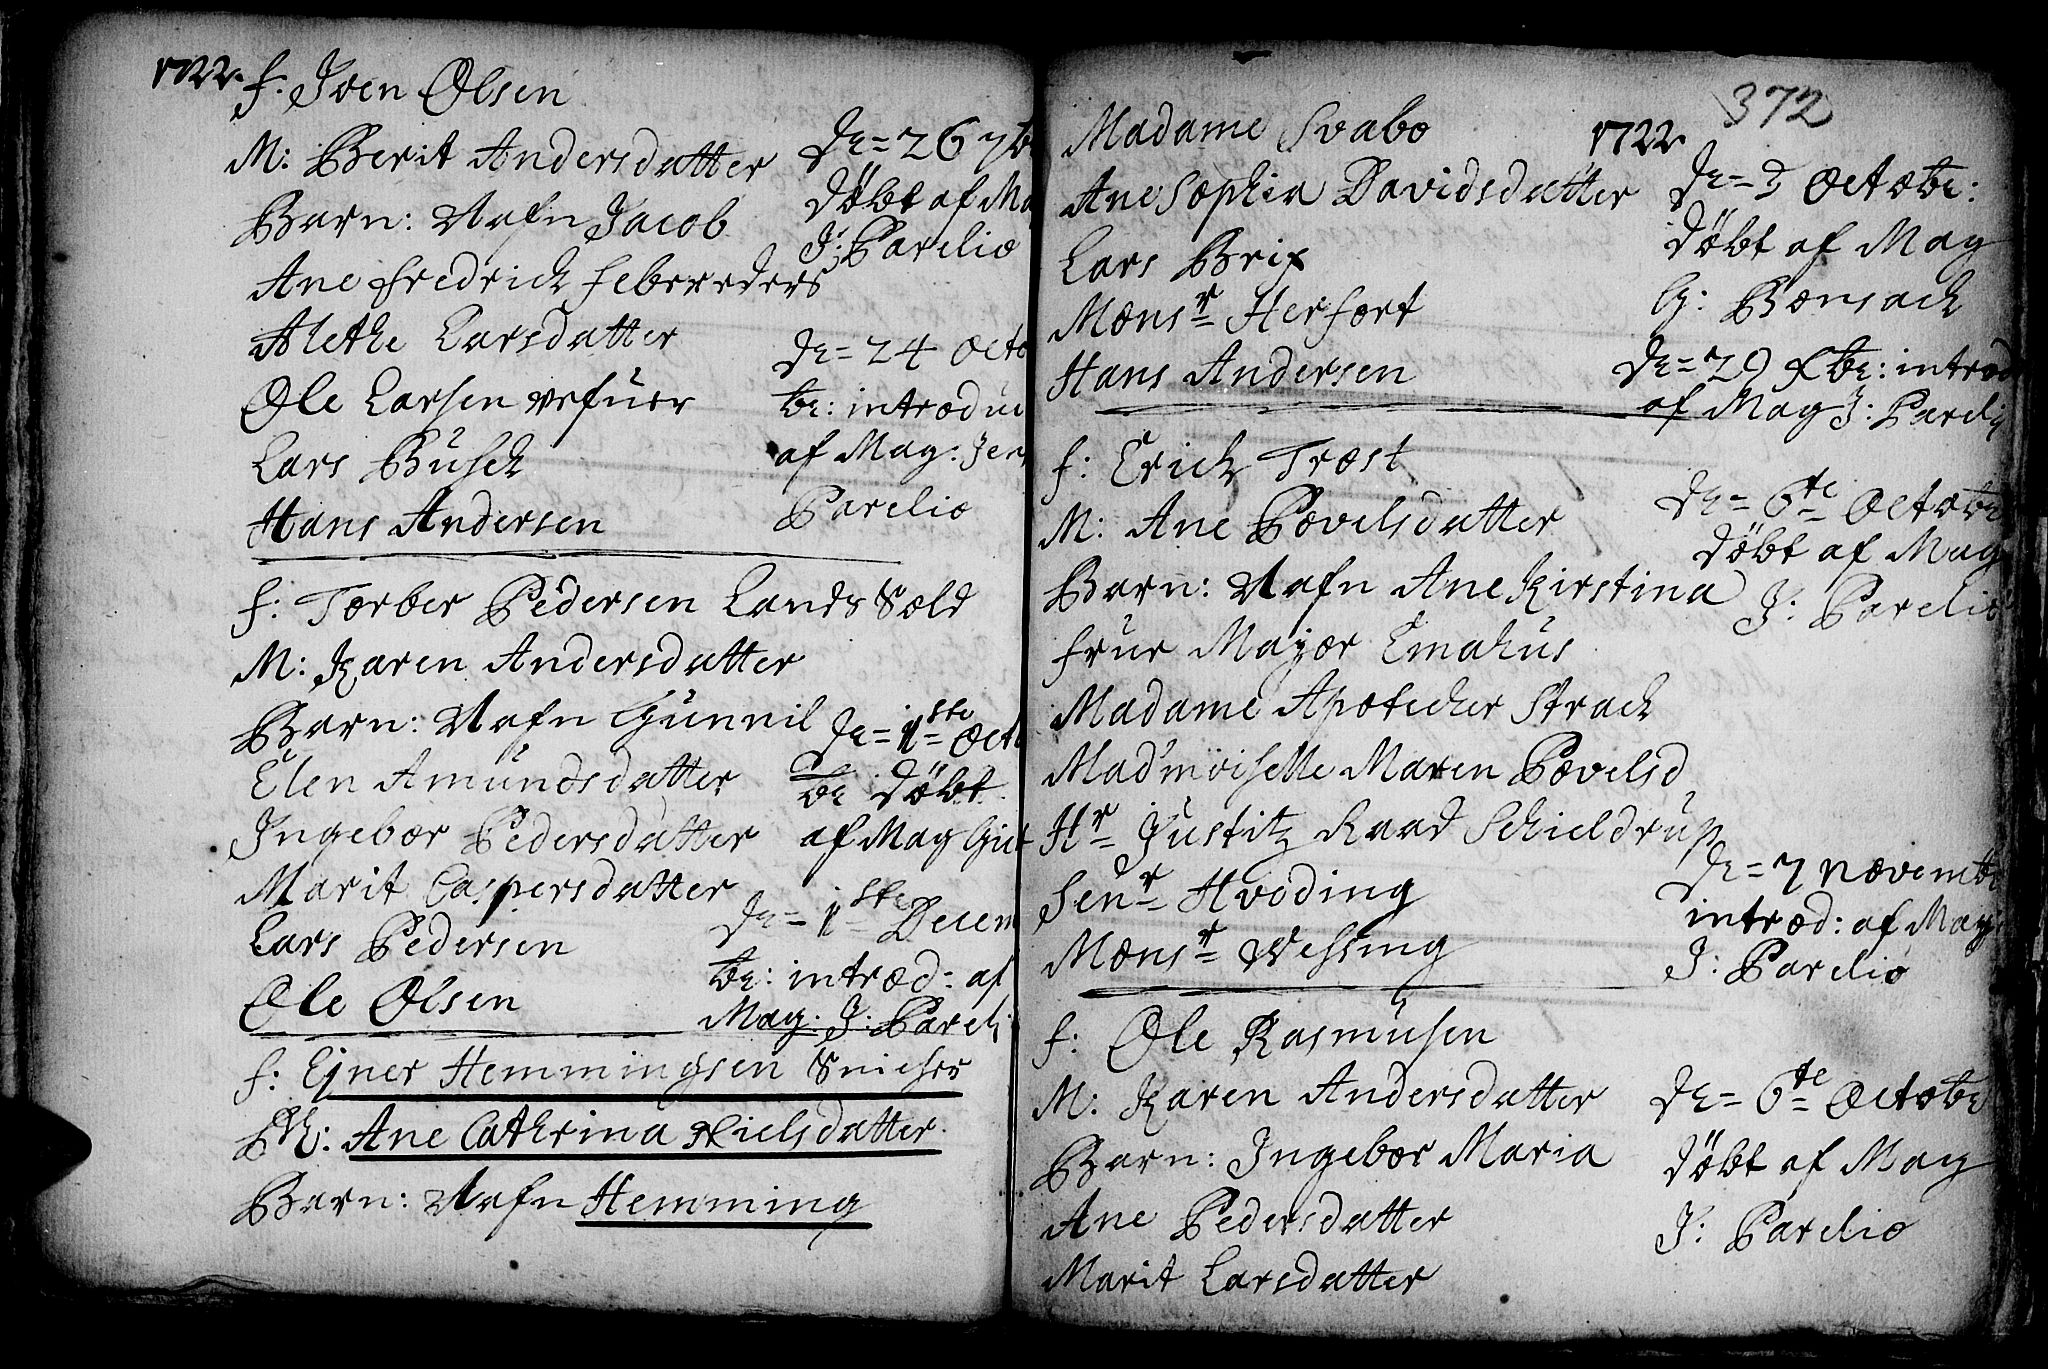 1722.
f: Iven Olsen
M: Berit Andersdatter
Barn: Nafn Jacob
Ane Fredrich Febereders
Alethe Larsdatter
Ole Larsen
Lars Busch
Hans Andersen
De = 26 7b
döbt af Ma
J: Parelio
De = 24 Octo
br: introdu
af Mag: Jen
Parelio
f: Torber Pedersen Lands Sold
M: Karen Andersdatter
Barn: Nafn Gunnil
Elen Amundsdatter
Ingebor Pedersdatter
Marit Caspersdatter
Lars Pedersen
Ole Olsen
De = 1ste Octo
br döbt
af Mag Gut
De = 1ste Decem
br: introd: af
Mag: J: Pareli
f: Ejner Hemmingsen Snicher
M: Ane Cathrina Nielsdatter.
Barn: Nafn Hemming
372
1722
Madame Svabo
Ane Sophia Davidsdatter
Lars Brix
Monsr Herfort
Hans Andersen
De = 3 Octobr:
döbt af Mag
G: Bonsach
De = 29 Xbr: introd
af Mag J: Pareli
f: Erich Trost
M: Ane Povelsdatter
Barn: Nafn Ane Kirstina
Frur Mayor Emahus
Madame Apotecher Strach
Mad'moiselle Maren Povelsd
Hr Justitz Raad Schieldrup
Senr Hveding
Monsr Wessing
De = 6te Octobr
döbt af Mag
J: Parelio
De = 7 Novembr
introd: af Mag
J: Parelio
f: Ole Rasmusen
M: Karen Andersdatter
Barn: Ingebor Maria
Ane Pedersdatter
Marit Larsdatter
De = 6te Octobr
döbt af Mag
J: Parelio